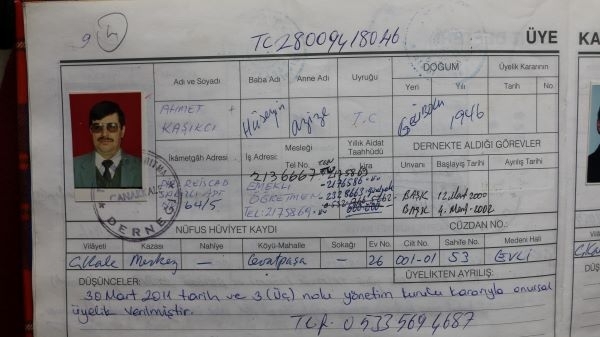 9 4 TC 28009418046 ÜYE KA
Adı ve Soyadı Baba Adı Anne Adı Uyruğu DOĞUM Üyelik Kararının
Yeri Yılı Tarih No
AHMET KAŞIKCI Hüseyin Azize T.C Gelibolu 1946
İkâmetgâh Adresi İş Adresi Mesleği Tel No. Yıllık Aidat Taahhüdü Lira DERNEKTE ALDIĞI GÖREVLER
Unvanı Başlayış Tarihi Ayrılış Tarihi
2136667 2175869
64/5 EMEKLİ 2176586
ÖĞRETMEN
TEL: 2175869
BAŞK 12 Mart 2000
BAŞK 4. Mart-2002
DERNEĞİ
NÜFUS HÜVİYET KAYDI CÜZDAN NO.:
Vilâyeti Kazası Nahiye Köyü-Mahalle Sokağı Ev No. Cilt No. Sahife No. Medeni Hali
Ç.Kale Merkez — Cevatpaşa — 26 001-01 53 EVLİ
DÜŞÜNCELER: ÜYELİKTEN AYRILIŞ:
30 Mart 2011 tarih ve 3 (Üç) nolu yönetim kurulu kararıyla onursal
üyelik verilmiştir.
TLf. 0 533 569 4687